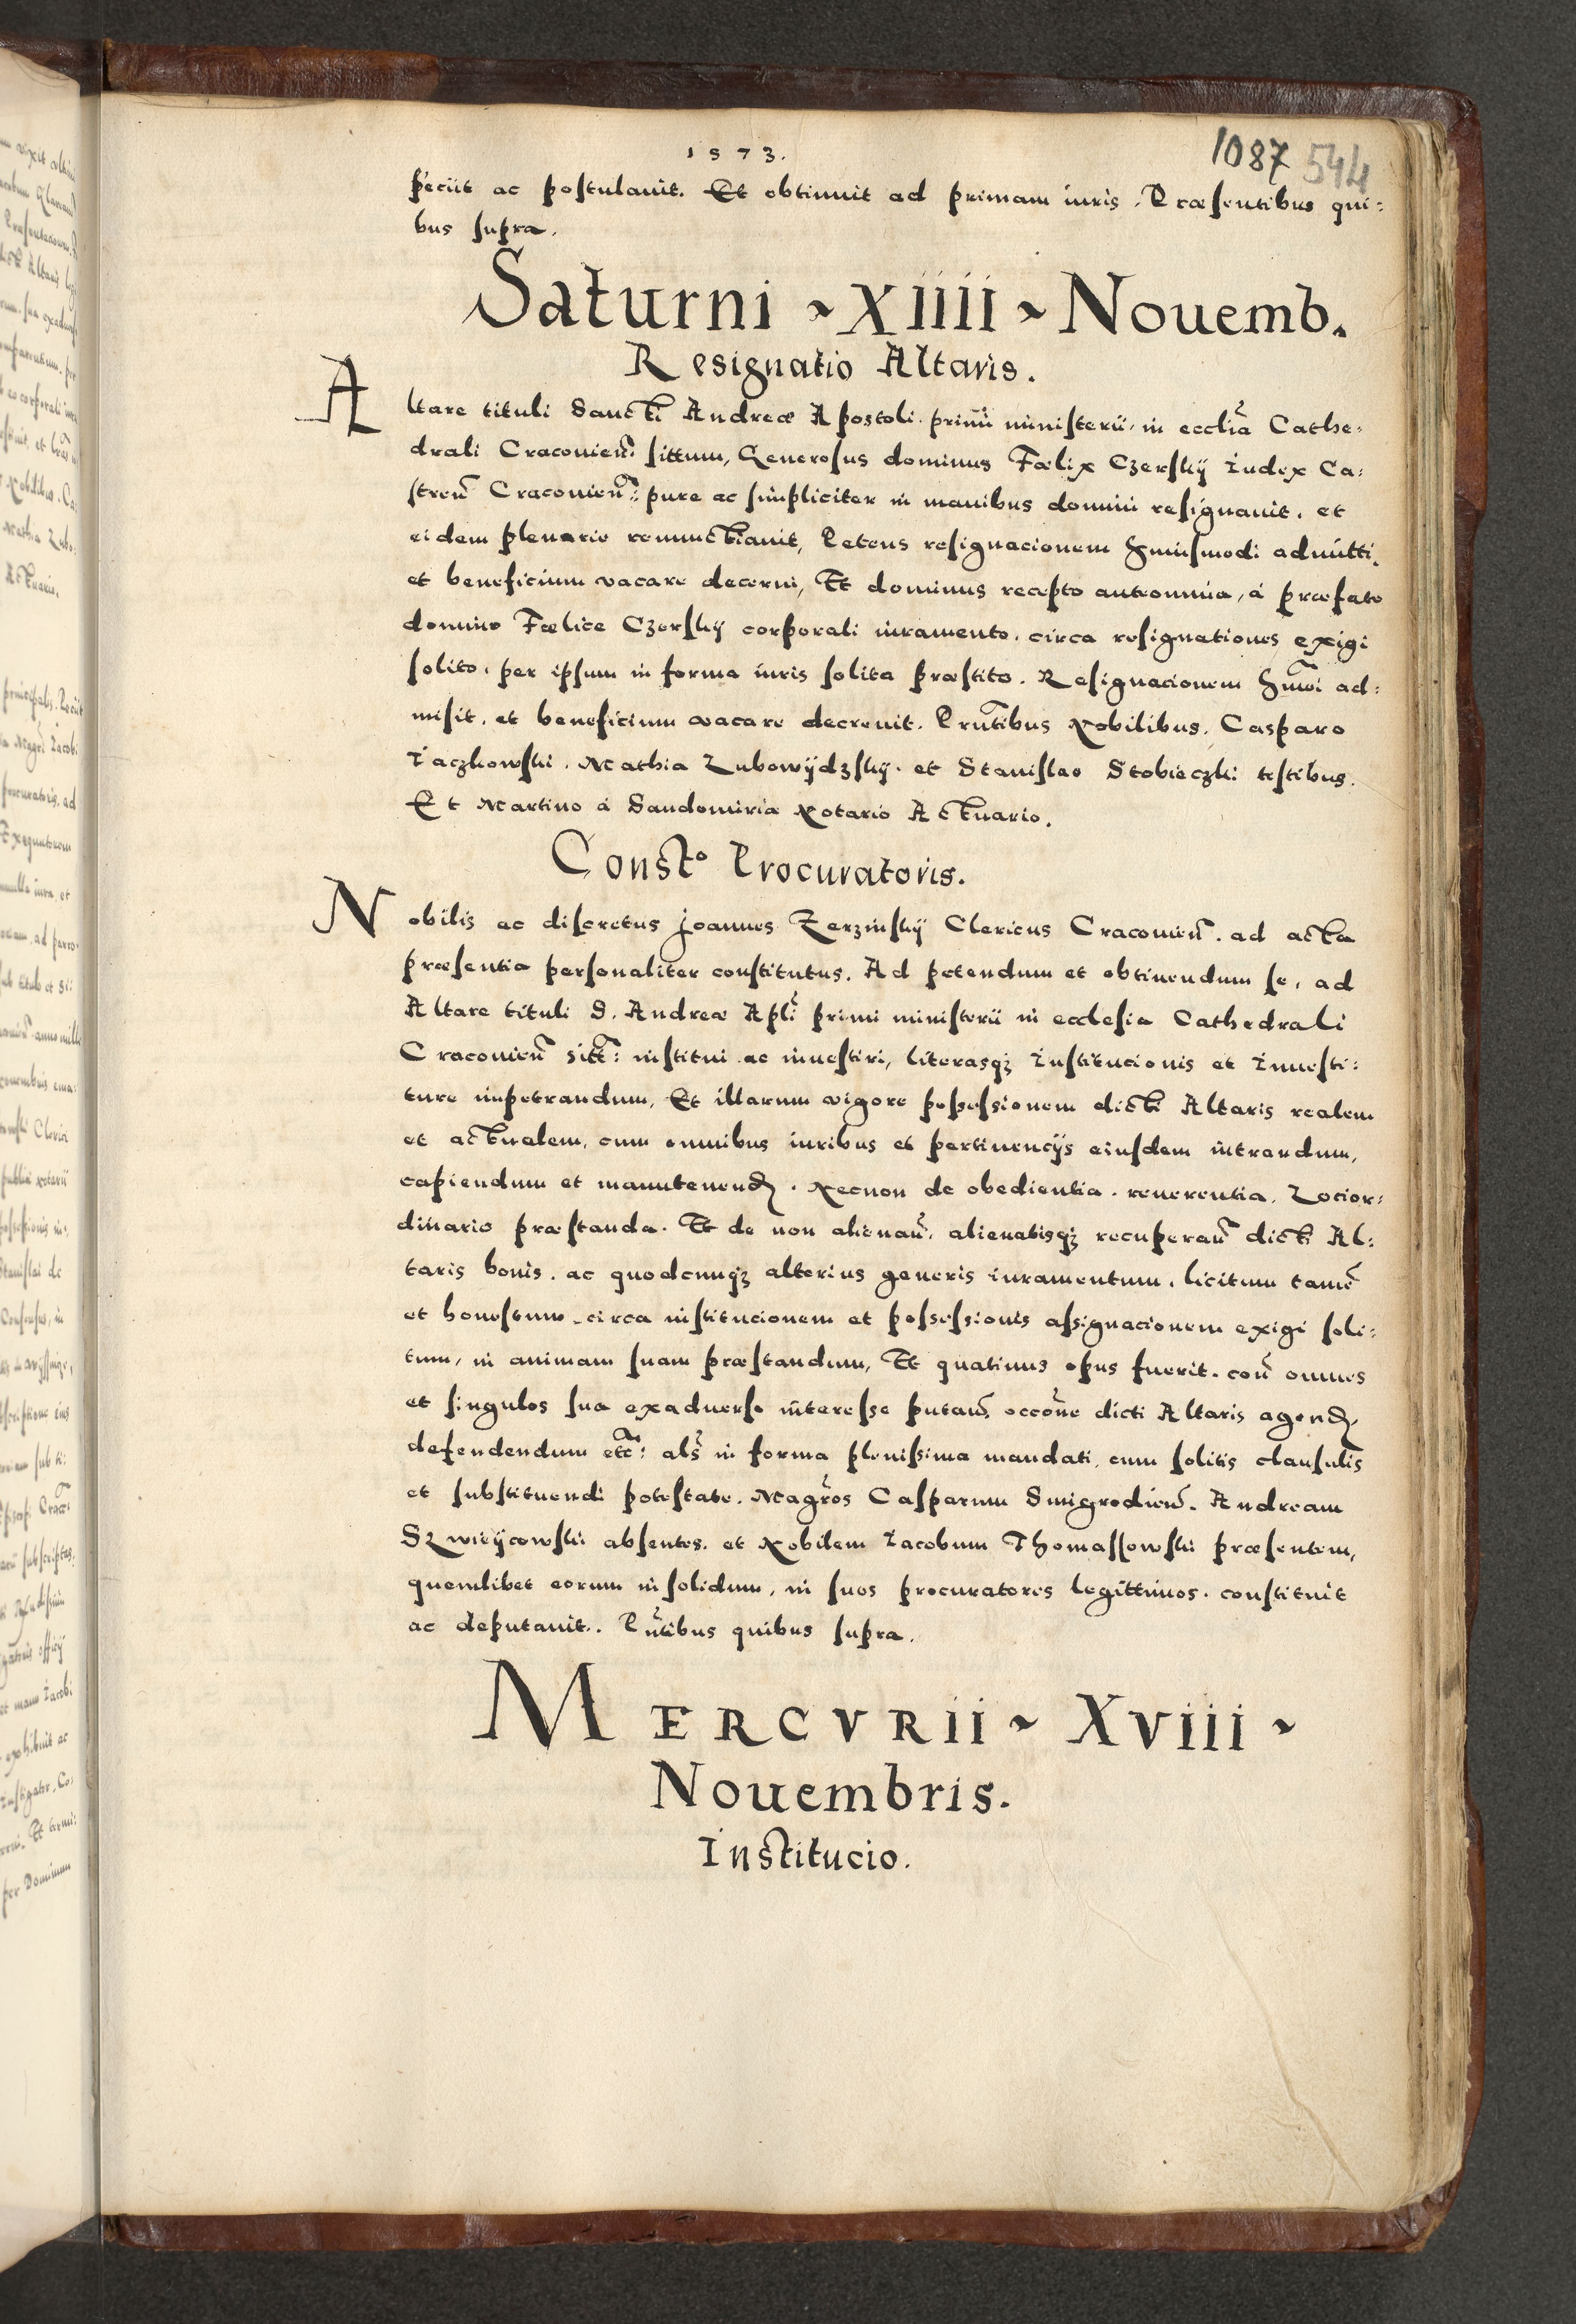 1573.
1087 544
peciit ac postulauit. Et obtinuit ad primam iuris. Præsentibus qui:
bus supra.
Saturni ~ Xiiii ~ Nouemb.
Resignatio Altaris.
Altare tituli Sancti Andreæ Apostoli. primi ministerii. in ecclīa Cathe:
drali Cracovieñ: sittum, Generosus dominus Fœlix Czerskÿ Iudex Ca:
streñ Cracovieñ: pure ac simpliciter in manibus domini resignauit. et
eidem plenarie renunctiauit, Petens resignacionem huiusmodi admitti.
et beneficium vacare decerni, Et dominus recepto anteomnia, á præfato
domino Fœlice Czerskÿ corporali iuramento. circa resignationes exigi
solito, per ipsum in forma iuris solita præstito. Resignacionem hm̃oi ad:
misit. et beneficium vacare decreuit. Prñtibus Nobilibus. Casparo
Iaczkowski. Mathia Lubowÿdzskÿ. et Stanislao Stobieczki testibus.
Et Martino á Sandomiria Notario Actuario.
Constᵒ Procuratoris.
Nobilis ac discretus Joannes Zerzinskÿ Clericus Cracovieñ. ad acta
præsentia personaliter constitutus. Ad petendum et obtinendum se, ad
Altare tituli S. Andreæ Apli primi ministerii in ecclesia Cathedrali
Cracovieñ sitt̃: institui ac inuestiri, literasqꝫ Institucionis et Inuesti:
ture impetrandum, Et illarum vigore possessionem dicti Altaris realem
et actualem, cum omnibus iuribus et pertinencijs eiusdem intrandum,
capiendum et manutenend̃. Necnon de obedientia. reuerentia. Locior:
dinario præstanda. Et de non alienañ. alienatisqꝫ recuperañ dicti Al:
taris bonis. ac quodcunqꝫ alterius generis iuramentum. licitum tamẽ
et honestum. circa institucionem et possessionis assignacionem exigi soli:
tum, in animam suam præstandum, Et quatinus opus fuerit. coñ omnes
et singulos sua exaduerso interesse putañ. occõne dicti Altaris agend̃.
defendendum etc̃: als̃ in forma plenissima mandati. cum solitis clausulis
et substituendi potestate. Magr̃os Casparum Smigrodieñ. Andream
Szwieÿcowski absentes. et Nobilem Iacobum Thomassowski præsentem,
quemlibet eorum insolidum, in suos procuratores legittimos. constituit
ac deputauit. Pñtibus quibus supra.
MERCVRii ~ Xviii ~
Nouembris.
Institucio.